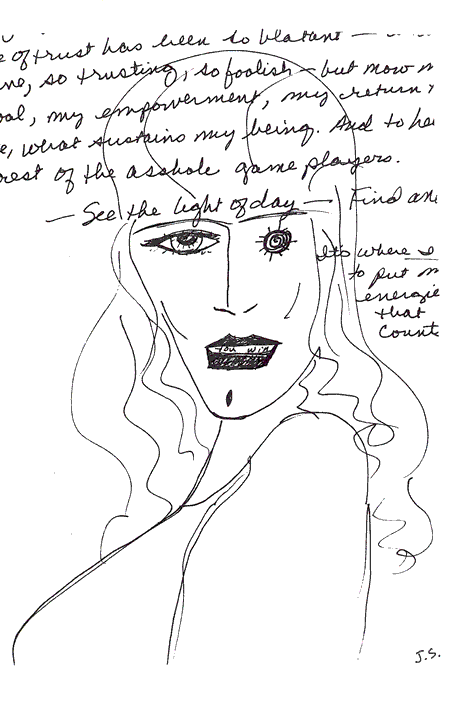 e of trust has been so blatant —
ne, so trusting, so foolish – but now m
oal, my empowerment, my return
e, what sustains my being. And to he
rest of the asshole game players.
— See the light of day — Find an
Its where I
to put m
energie
that
Count
You will
J.S.